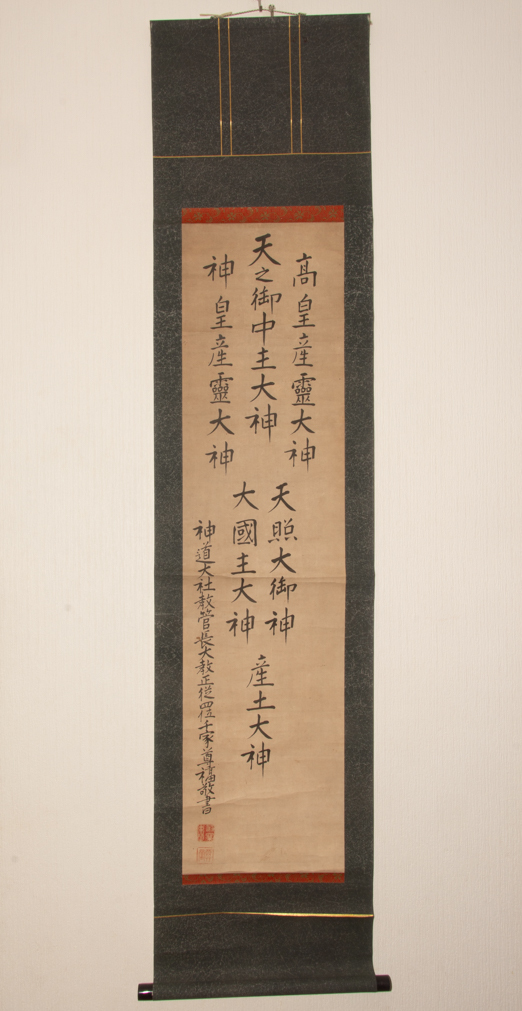 高皇産靈大神
天之御中主大神
神皇産靈大神
天照大御神
大國主大神
産土大神
神道大社教管長大教正従四位千家尊福敬書